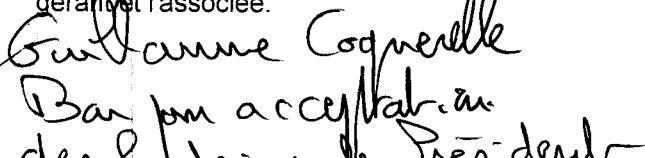 gérant et l'associée.
Guillaume Coquerelle
Bon pour acceptation
des fonctions de Président